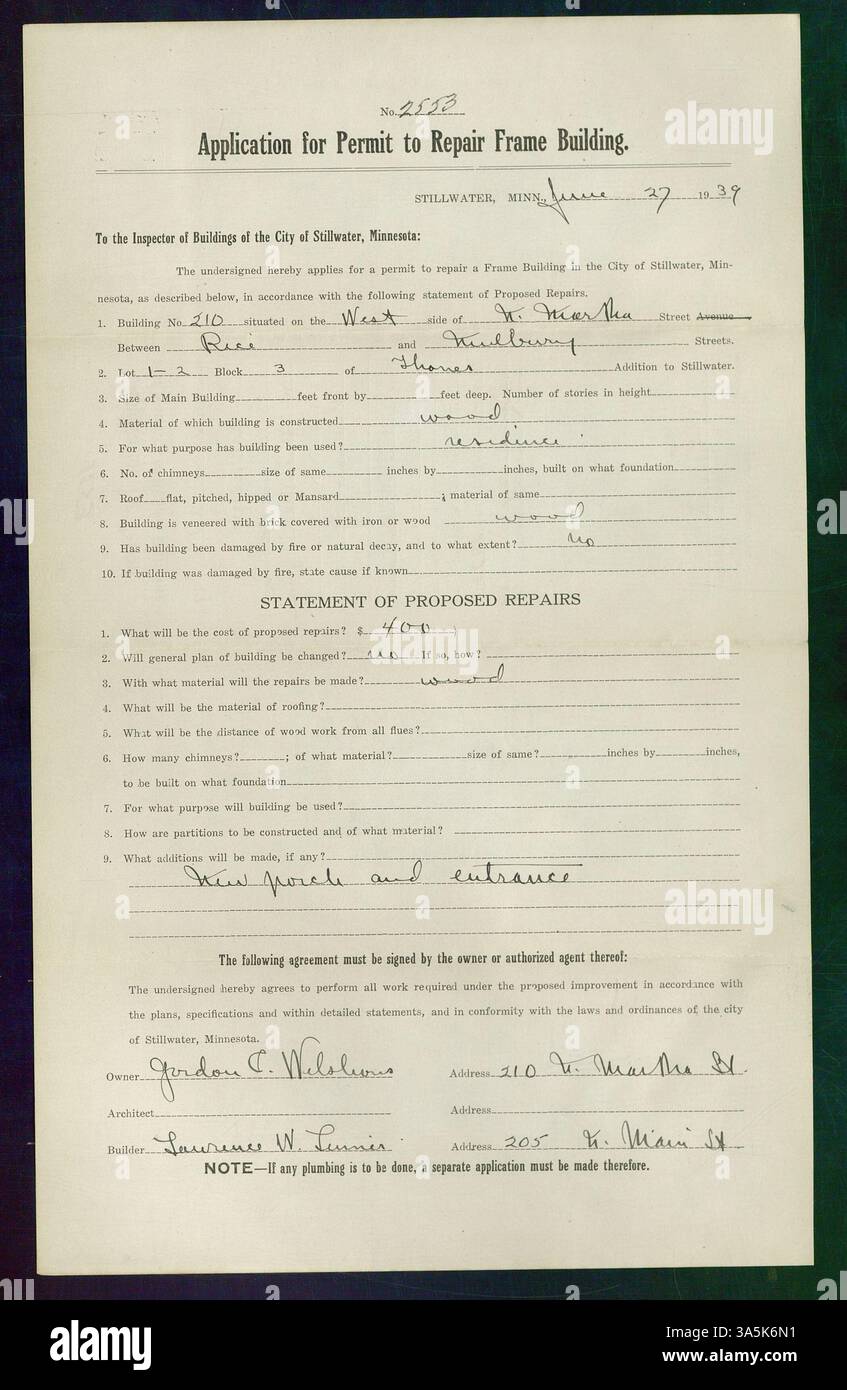 No. 2553
Application for Permit to Repair Frame Building.
STILLWATER, MINN., June 27 1939
To the Inspector of Buildings of the City of Stillwater, Minnesota:
The undersigned hereby applies for a permit to repair a Frame Building in the City of Stillwater, Min-
nesota, as described below, in accordance with the following statement of Proposed Repairs.
1. Building No. 210 situated on the West side of N. Martha Street Avenue
Between Rice and Mulburry Streets.
2. Lot 1-2 Block 3 of Addition to Stillwater.
3. Size of Main Building feet front by feet deep. Number of stories in height
4. Material of which building is constructed wood
5. For what purpose has building been used? residence
6. No. of chimneys size of same inches by inches, built on what foundation
7. Roof flat, pitched, hipped or Mansard ; material of same
8. Building is veneered with brick covered with iron or wood wood
9. Has building been damaged by fire or natural decay, and to what extent? no
10. If building was damaged by fire, state cause if known
STATEMENT OF PROPOSED REPAIRS
1. What will be the cost of proposed repairs? $ 400
2. Will general plan of building be changed? no If so, how?
3. With what material will the repairs be made? wood
4. What will be the material of roofing?
5. What will be the distance of wood work from all flues?
6. How many chimneys? ; of what material? size of same? inches by inches,
to be built on what foundation
7. For what purpose will building be used?
8. How are partitions to be constructed and of what material?
9. What additions will be made, if any?
New porch and entrance
The following agreement must be signed by the owner or authorized agent thereof:
The undersigned hereby agrees to perform all work required under the proposed improvement in accordance with
the plans, specifications and within detailed statements, and in conformity with the laws and ordinances of the city
of Stillwater, Minnesota.
Owner Gordon C. Address 210 N. Martha St.
Architect Address
Builder Lawrence W. Address 205 N. Main St
NOTE—If any plumbing is to be done, a separate application must be made therefore.
alamy
Image ID: 3A5K6N1
www.alamy.com